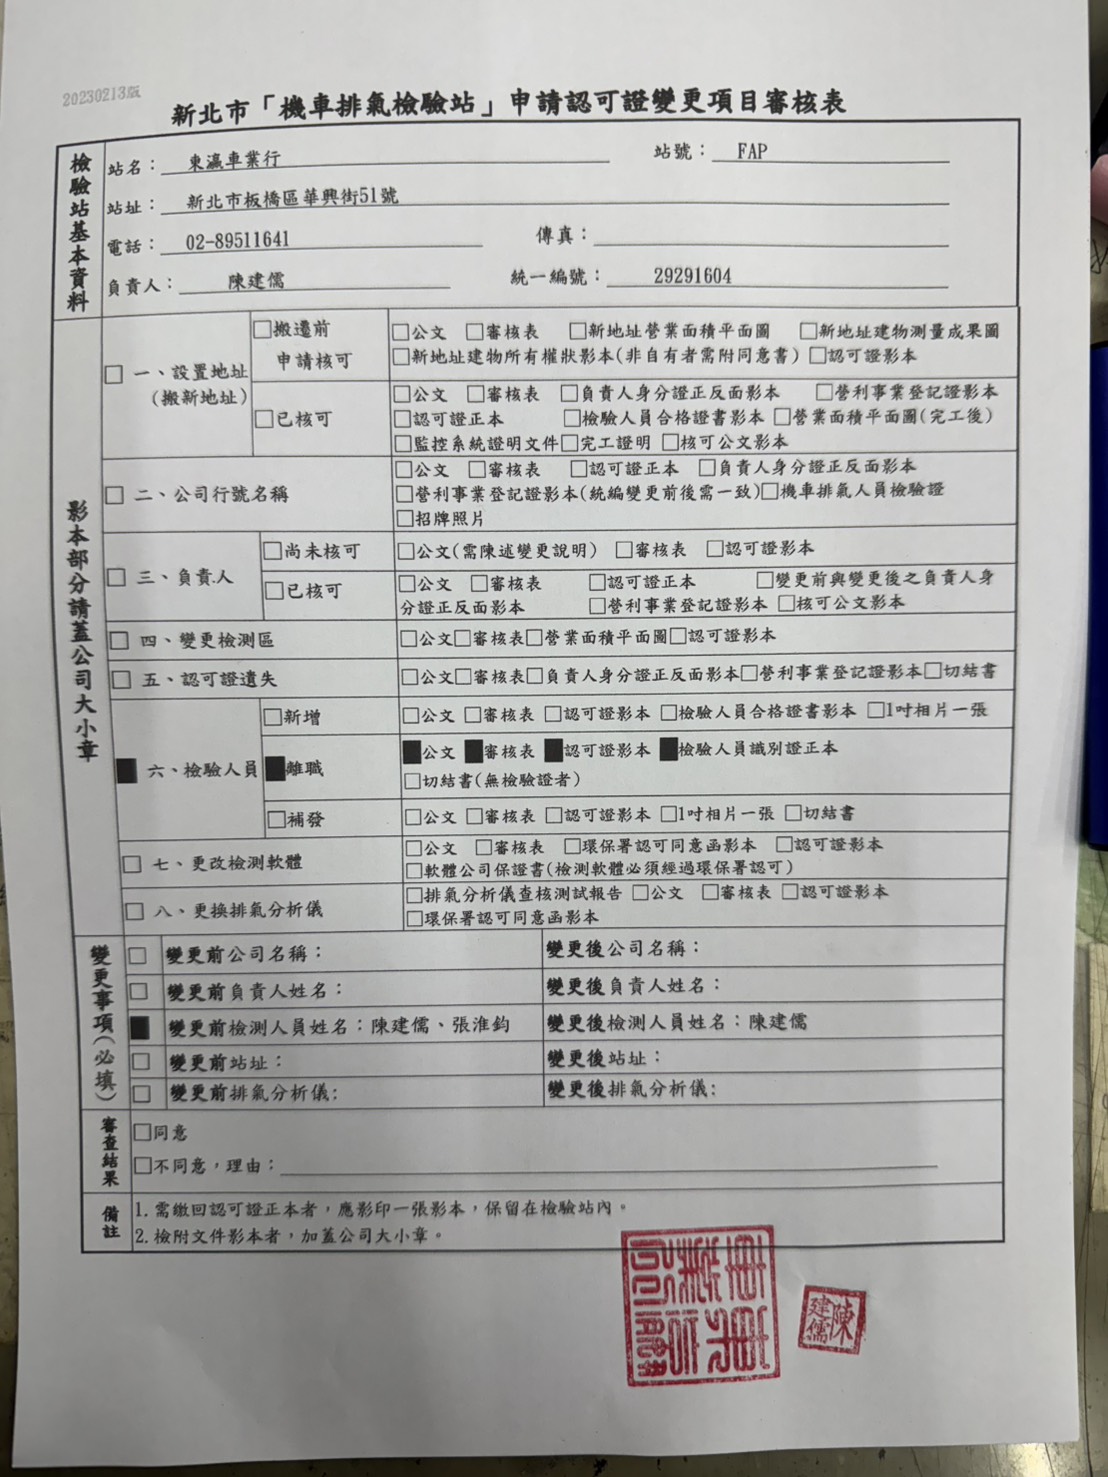 20230213版
新北市「機車排氣檢驗站」申請認可證變更項目審核表
檢驗站基本資料
站名：東瀛車業行 站號：FAP
站址：新北市板橋區華興街51號
電話：02-89511641 傳真：
負責人：陳建儒 統一編號：29291604
影本部分請蓋公司大小章
□ 一、設置地址（搬新地址）
□搬遷前申請核可
□公文 □審核表 □新地址營業面積平面圖 □新地址建物測量成果圖
□新地址建物所有權狀影本(非自有者需附同意書) □認可證影本
□已核可
□公文 □審核表 □負責人身分證正反面影本 □營利事業登記證影本
□認可證正本 □檢驗人員合格證書影本 □營業面積平面圖(完工後)
□監控系統證明文件□完工證明 □核可公文影本
□ 二、公司行號名稱
□公文 □審核表 □認可證正本 □負責人身分證正反面影本
□營利事業登記證影本(統編變更前後需一致)□機車排氣人員檢驗證
□招牌照片
□ 三、負責人
□尚未核可 □公文(需陳述變更說明) □審核表 □認可證影本
□已核可
□公文 □審核表 □認可證正本 □變更前與變更後之負責人身
分證正反面影本 □營利事業登記證影本 □核可公文影本
□ 四、變更檢測區 □公文□審核表□營業面積平面圖□認可證影本
□ 五、認可證遺失 □公文□審核表□負責人身分證正反面影本□營利事業登記證影本□切結書
■ 六、檢驗人員
□新增 □公文 □審核表 □認可證影本 □檢驗人員合格證書影本 □1吋相片一張
■離職 ■公文 ■審核表 ■認可證影本 ■檢驗人員識別證正本
□切結書(無檢驗證者)
□補發 □公文 □審核表 □認可證影本 □1吋相片一張 □切結書
□ 七、更改檢測軟體
□公文 □審核表 □環保署認可同意函影本 □認可證影本
□軟體公司保證書(檢測軟體必須經過環保署認可)
□ 八、更換排氣分析儀
□排氣分析儀查核測試報告 □公文 □審核表 □認可證影本
□環保署認可同意函影本
變更事項(必填)
□ 變更前公司名稱： 變更後公司名稱：
□ 變更前負責人姓名： 變更後負責人姓名：
■ 變更前檢測人員姓名：陳建儒、張淮鈞 變更後檢測人員姓名：陳建儒
□ 變更前站址： 變更後站址：
□ 變更前排氣分析儀: 變更後排氣分析儀:
審查結果
□同意
□不同意，理由：
備註
1. 需繳回認可證正本者，應影印一張影本，保留在檢驗站內。
2. 檢附文件影本者，加蓋公司大小章。
陳建儒